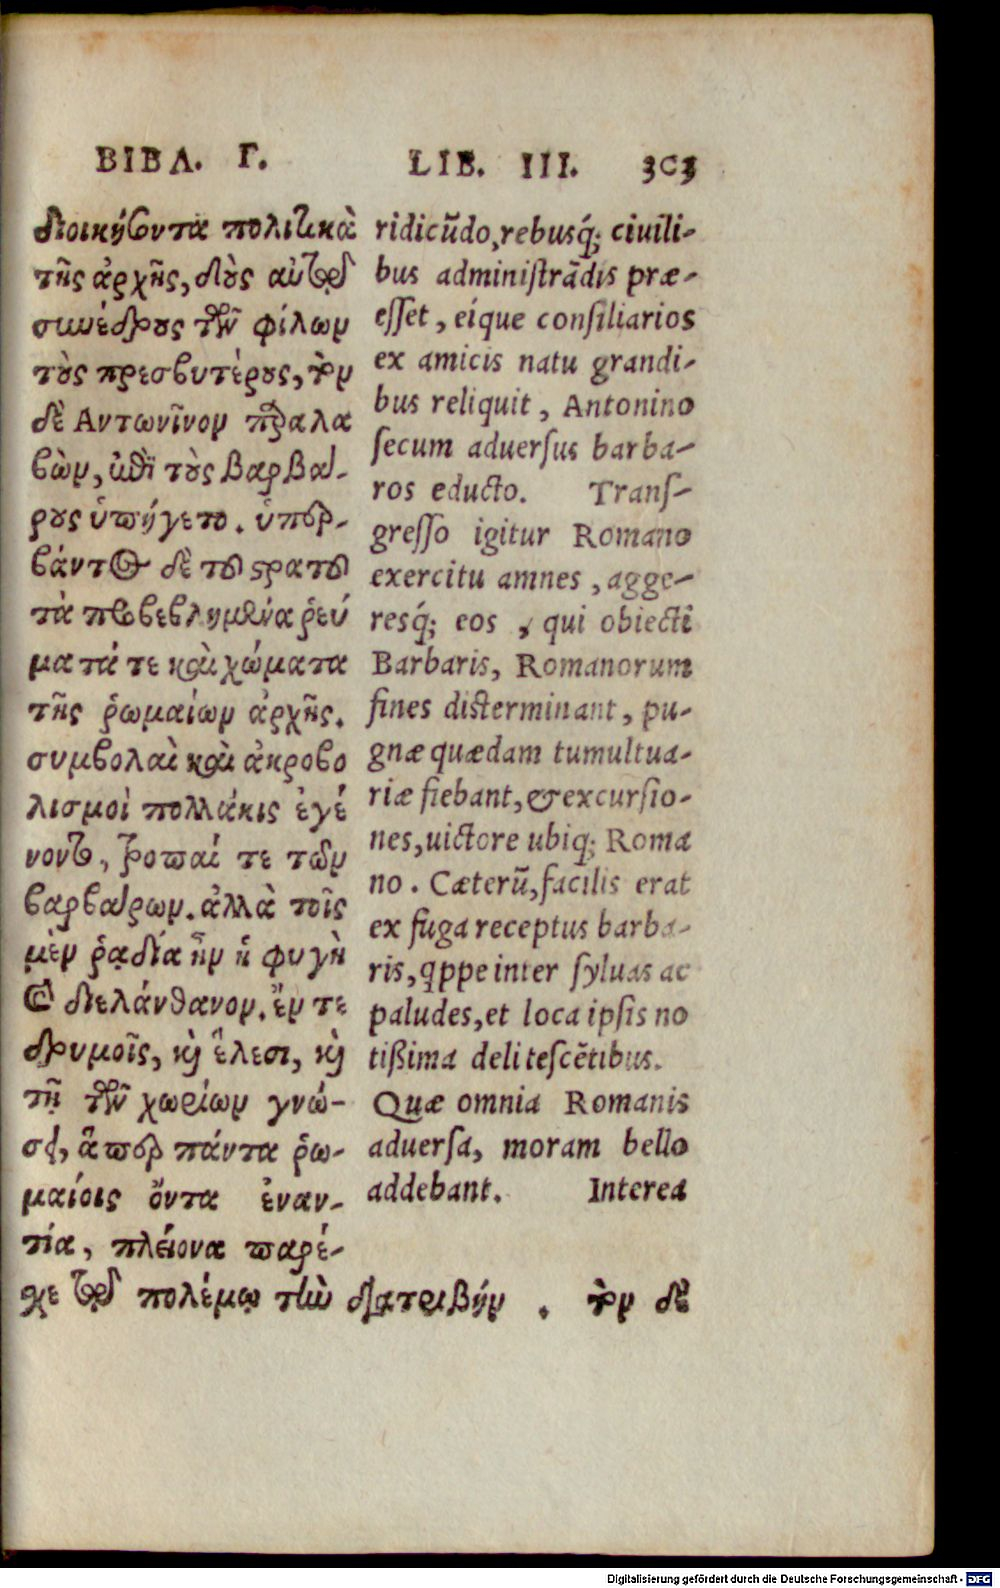 ΒΙΒΛ. Γ.
διοικήσοντα πολιτικὰ
τῆς ἀρχῆς, δοὺς αὐτῷ
συνέδρους τῶν φίλων
τοὺς πρεσβυτέρους, τὸν
δὲ Αντωνῖνον παραλα
βὼν, ἐπὶ τοὺς βαρβά-
ρους ἠπήγετο. ὑπερ-
βάντος δὲ τοῦ στρατοῦ
τὰ προβεβλημένα ῥεύ
ματά τε καὶ χώματα
τῆς ῥωμαίων ἀρχῆς.
συμβολαὶ καὶ ἀκροβο
λισμοὶ πολλάκις ἐγέ
νοντο, τροπαί τε τῶν
βαρβάρων. ἀλλὰ τοῖς
μὲν ῥᾳδία ἦν ἡ φυγὴ
καὶ διελάνθανον. ἔν τε
δρυμοῖς, καὶ ἕλεσι, καὶ
τῇ τῶν χωρίων γνώ-
σει, ἅπερ πάντα ῥω-
μαίοις ὄντα ἐναν-
τία, πλείονα παρέ-
χε τῷ πολέμῳ τὴν διατριβήν. τὸν δὲ
LIB. III. 303
ridicũdo, rebusq́; ciuili-
bus administrãdis præ-
esset, eíque consiliarios
ex amicis natu grandi-
bus reliquit, Antonino
secum aduersus barba-
ros educto. Trans-
gresso igitur Romano
exercitu amnes, agge-
resq́; eos, qui obiecti
Barbaris, Romanorum
fines disterminant, pu-
gnæ quædam tumultua-
riæ fiebant, & excursio-
nes, uictore ubiq; Roma
no. Cæterũ, facilis erat
ex fuga receptus barba-
ris, qppe inter syluas ac
paludes, et loca ipsis no
tißima delitescẽtibus.
Quæ omnia Romanis
aduersa, moram bello
addebant. Interea
Digitalisierung gefördert durch die Deutsche Forschungsgemeinschaft - DFG